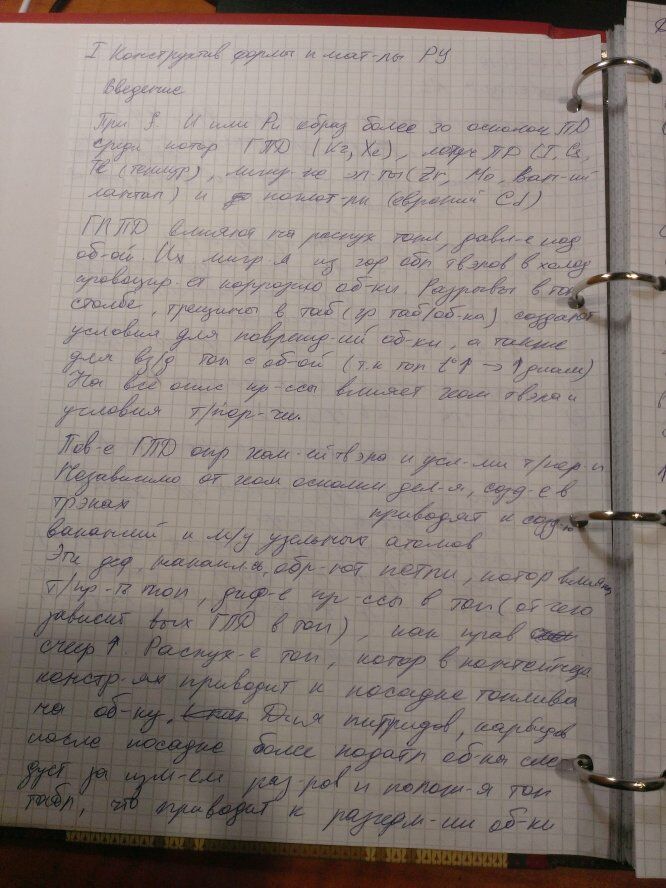 I Конструктив формы и мат-лы РУ
Введение
При f. U или Pu образ более 30 осколок ПД
среди котор ГПД (Kr, Xe), летуч ПД (I, Cs,
Te (теллур), мигр-ие эл-ты (Zr, Mo,
лантан) и поглот-ли (европий Cd)
ГПД влияют на распух топл, давл-е под
об-ой. Их мигр-я из гор обл твэлов в холод
провоцир-ет коррозию об-ки. Разрывы в топ
столбе, трещины в таб (гр таб/об-ка) создают
условия для поврежд-ий об-ки, а также
для вз/д топ с об-ой (т.к топ t°↑ → ↑ диам)
На все опис пр-ссы влияет геом твэла и
условия т/пер-чи.
Пов-е ГПД опр геом-ей твэла и усл-ми т/пер-и
Независимо от геом осколки дел-я, созд-е в
трэках приводят к созд-ю
вакансий и м/у узельных атомов
Эти деф, накапл-я, обр-ют петли, котор влияют
т/пр-ть топ, диф-е пр-ссы в топ (от чего
зависит вых ГПД в топ), как прав
счёр ↑. Распух-е топ, котор в контейнер
констр-ях приводит к посадке топлива
на об-ку. Для нитридов, карбидов
после посадке более податл об-ка сле
дует за изм-ем раз-ров и полож-я топ
табл, что приводит к разгерм-ии об-ки